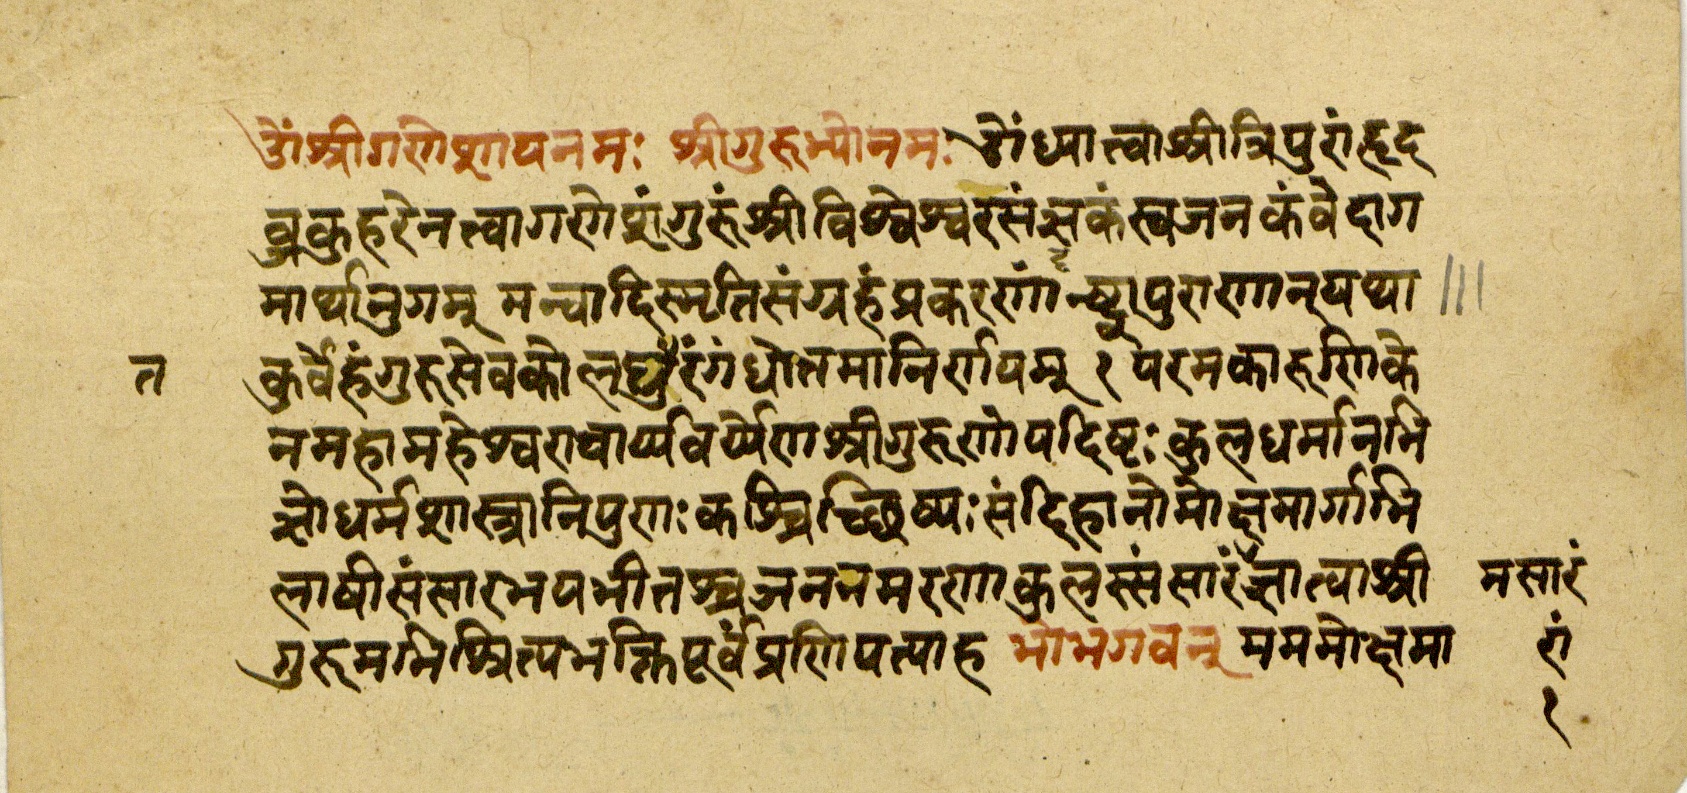 ओं श्रीगणेशाय नमः श्रीगुरुभ्यो नमः ओं ध्यात्वा श्रीत्रिपुरां हृद
कुहरे नत्वा गणेशं गुरुं श्रीविश्वेश्वरसंज्ञकं स्वजनकं वेदाग
मार्थानुगम् मन्वादिस्मृतिसंग्रहं प्रकरणं दृष्ट्वा पुराणान्यप्या
कुर्वेहं गुरुसेवको निर्णयम् १ परमकारुणिके
त
न महामहेश्वराचार्य्यवर्य्येण श्रीगुरुणोपदिष्टः कुलधर्मानभि
ज्ञो धर्मशास्त्रानिपुणः कश्चिच्छिष्यः संदिहानो मोक्षमार्गाभि
लाषी संसारभयभीतश्च जननमरणाकुलस्संसारं ज्ञात्वा श्री
मसारं
गुरुमभिश्रित्य भक्तिपूर्वं प्रणिपत्याह भो भगवन् मम मोक्षमा
रां
१